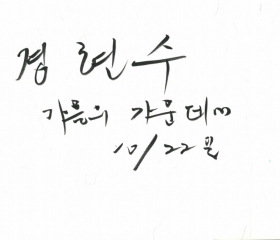 경 련 수
가을의 가운데에
10/22 일